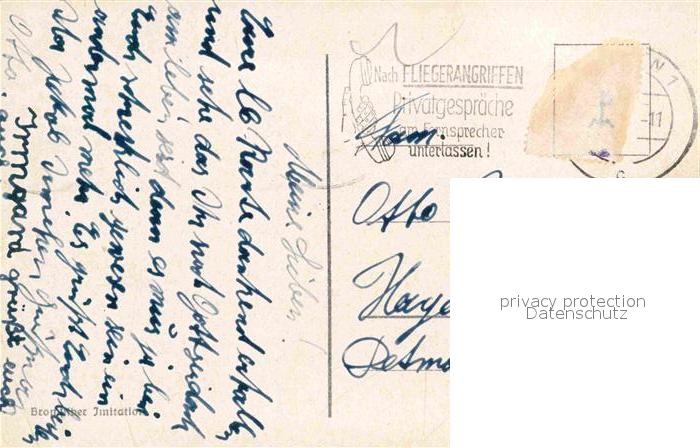 Meine Lieben!
Eure lb Karte dankend erhalten
und sehe das Ihr noch Gottseidank
am leben seid denn es muß ja bei
Euch schrecklich gewesen sein ein
andermal mehr Es grüßt Euch
Otto, auch
Irmgard grüßt euch
Nach FLIEGERANGRIFFEN
Privatgespräche
am Fernsprecher
unterlassen!
11
Fam.
Otto
Hage
Detmo
Bromsilber Imitation
privacy protection
Datenschutz